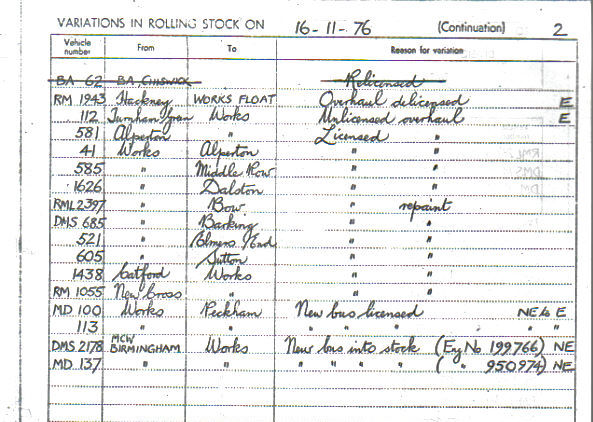 VARIATIONS IN ROLLING STOCK ON 16-11-76 (Continuation) 2
Vehicle number From To Reason for variation
BA 62 BA CHISWICK Relicensed
RM 1943 Hackney WORKS FLOAT Overhaul delicensed E
112 Turnham Green Works Unlicensed overhaul E
581 Alperton " Licensed "
41 Works Alperton " "
585 " Middle Row " "
1626 " Dalston " "
RML 2397 " Bow " repaint
DMS 685 " Barking " "
521 " Elmers End " "
605 " Sutton " "
1438 Catford Works " "
RM 1055 New Cross " " "
MD 100 Works Peckham New bus licensed NE to E
113 " " " " " " "
DMS 2178 MCW BIRMINGHAM Works New bus into stock (Eng No 199766) NE
MD 137 " " " " " " ( " 950974) NE